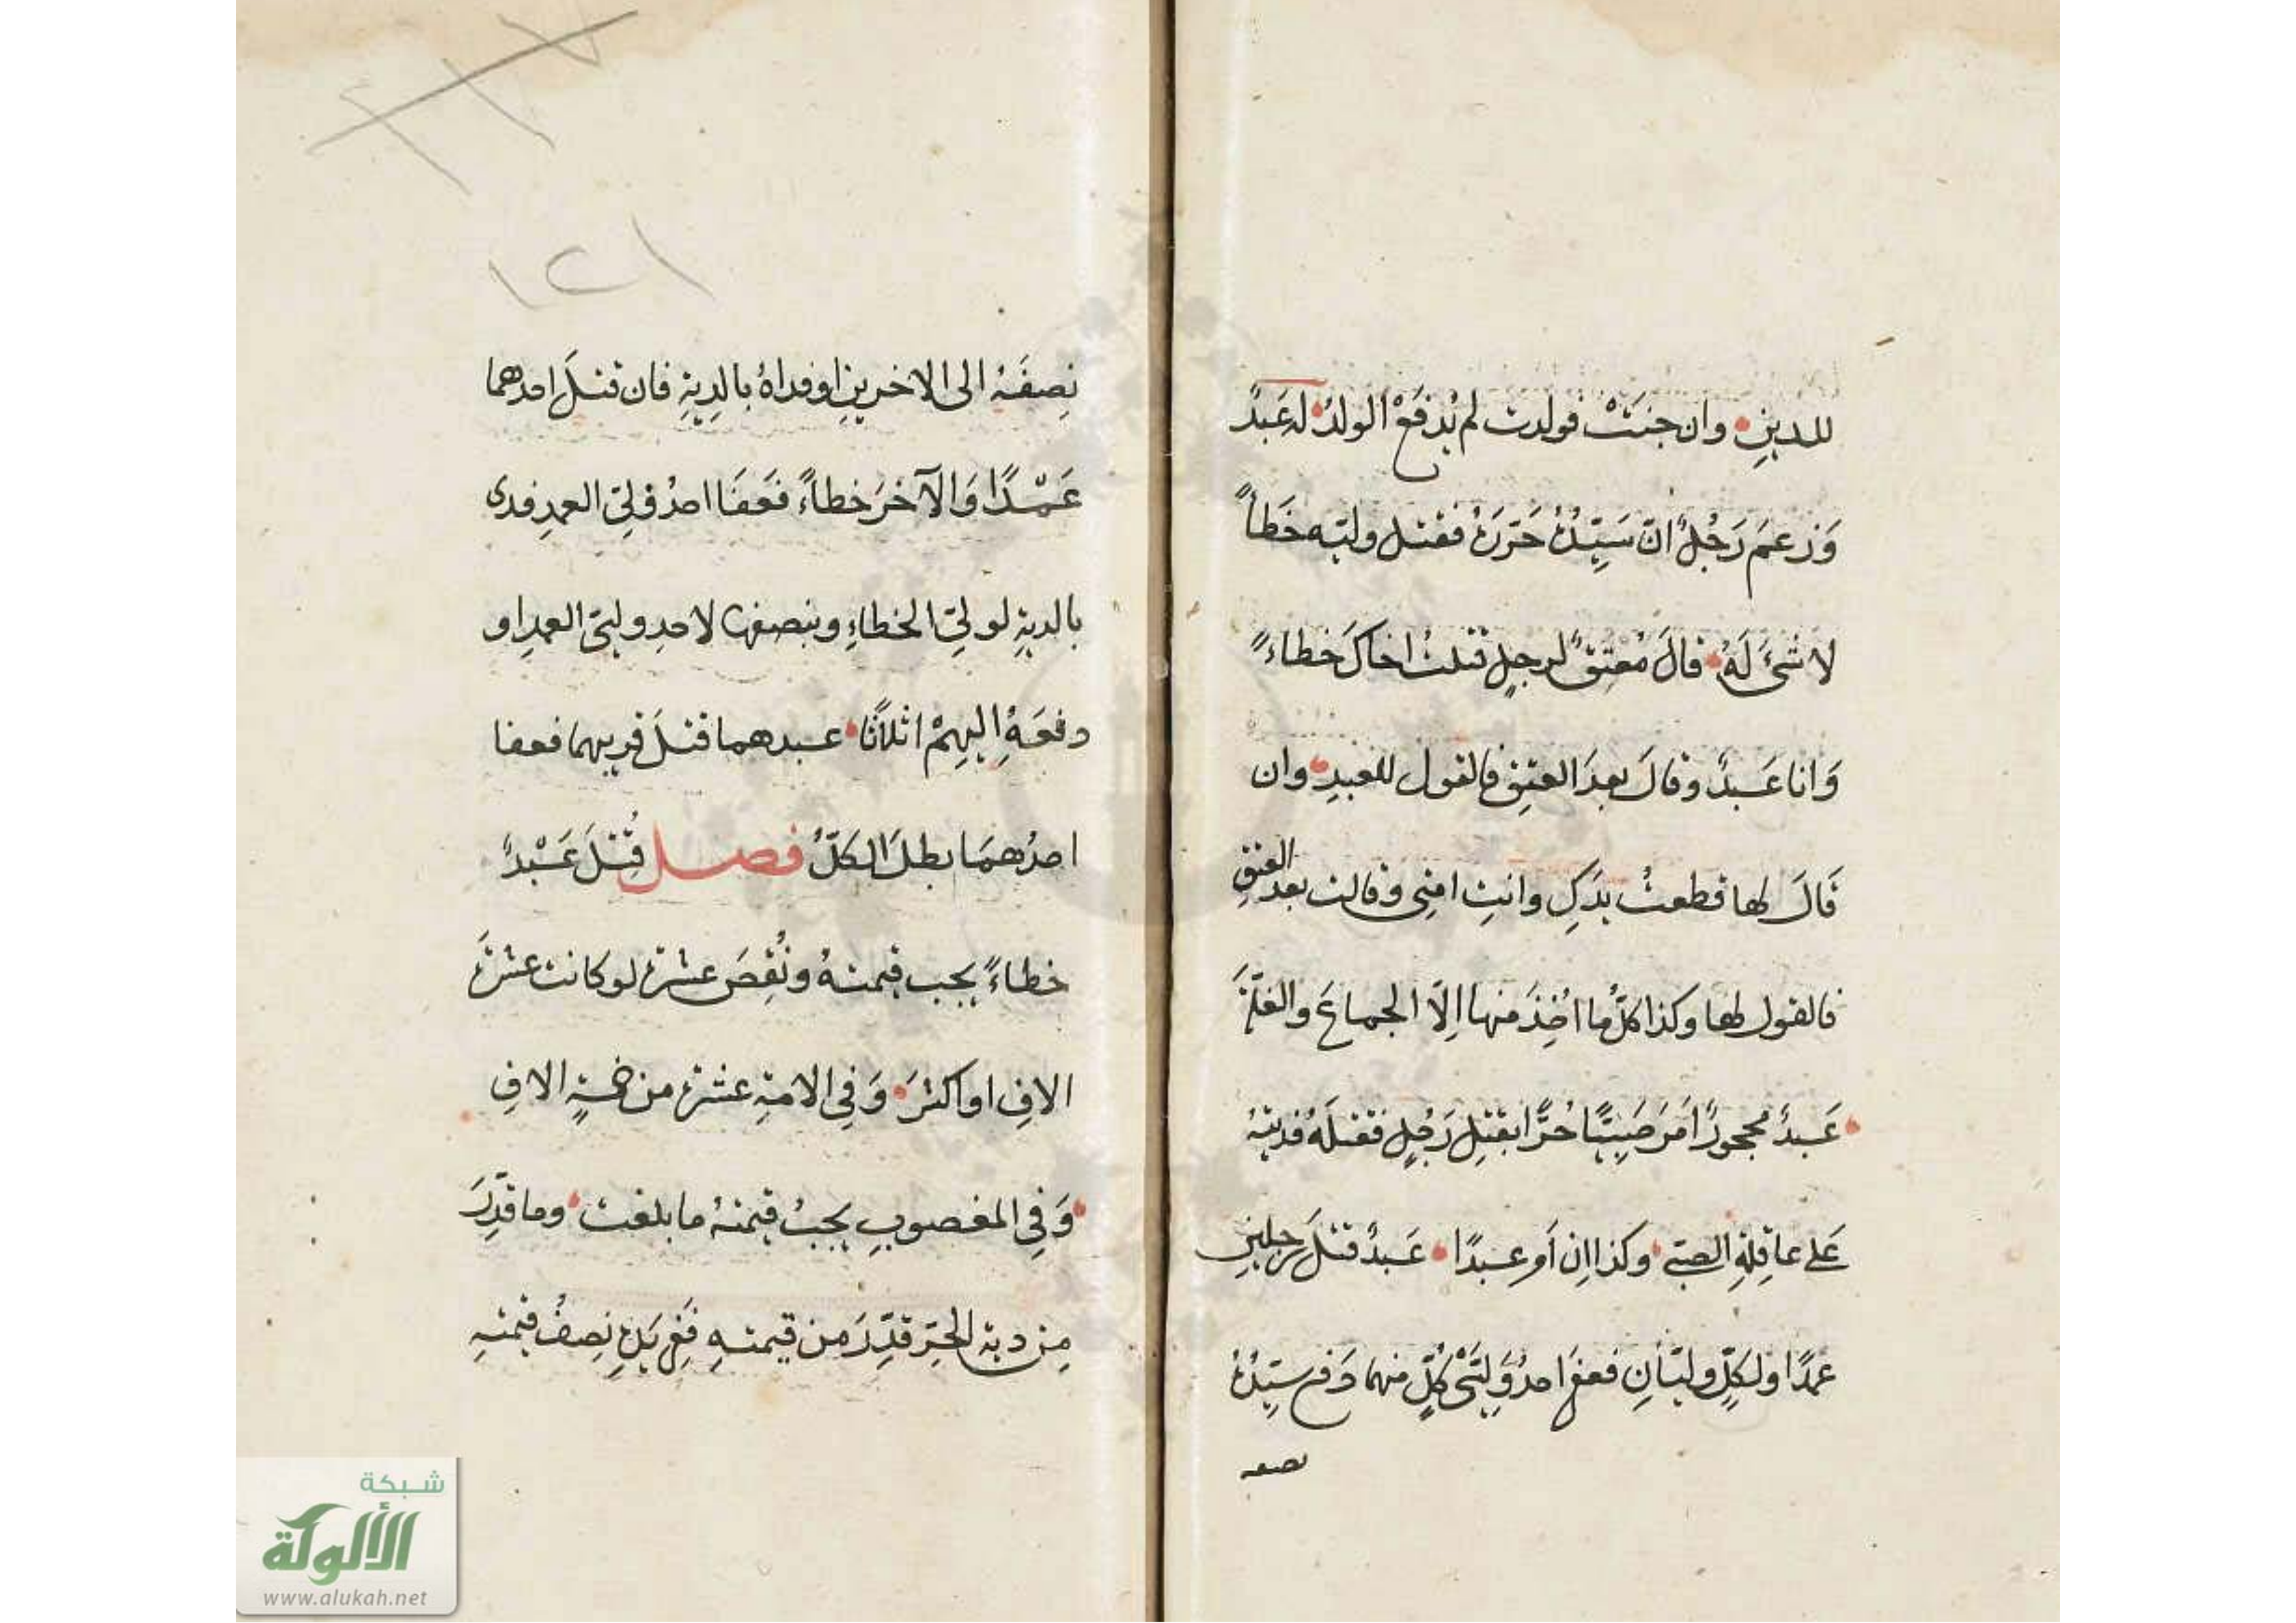 للدينِ وان جنَتْ فولدت لم يُدفَعْ الولدُ له عَبدٌ
وَزعمَ رَجُلٌ انّ سَيِّدَهُ حَرّرَهُ فقتل وليّه خَطأً
لا شئَ لَهُ قالَ مُعتِقٌ لرجلٍ قتلتُ اخاكَ خطاءً
وَانا عَبدٌ وقالَ بعدَ العتِقِ فالقول للعبدِ وان
قَالَ لها قطعتُ يدَكِ وانتِ امتِى وقالت بعد العتقِ
فالقول لها وكذا كلُّ ما اُخِذَ منها اِلّا الجماعَ والغلّةَ
عَبدٌ محجورٌ اَمَرَ صَبِيًّا حُرًّا بقتِل رَجُلٍ فقتلَهُ فديتهُ
عَلى عاقِلةِ الصبّى وكذا اِن اَمر عبدًا عَبدٌ قتَلَ رجلينِ
عمدًا ولكلٍّ وليّانِ فعفَا احدُ وَلِيَّىْ كُلٍّ منهما دَفع سيّدُهُ
نصفه
١٢١
نِصفَهُ الى الاخرينِ او فداهُ بالدِيةِ فان قتلَ احدهما
عَمْدًا وَالآخرَ خطاءً فَعَفَا احدُ ولِيّى العمدِ فدى
بالديةِ لوليّى الخطاءِ وبنصفها لاحدِ وليّى العمدِ او
دفعَهُ اِليهِمْ اثلاثًا عبدهما قتلَ قريبهما فعفا
احدُهمَا بطلَ الكلُّ فصل قُتِلَ عَبْدٌ
خطاءً يجب قيمتهُ ونُقِصَ عشرة لو كانت عشرةَ
الافِ او اكثرَ وَفِى الامَةِ عشرة من خمسةِ الافِ
وَفِى المغصوبِ يجبُ قيمتهُ ما بلغت وما قدِّرَ
مِن ديةِ الحرِّ قدِّرَ من قيمتهِ فَفِى يَدِهِ نِصفُ قيمتهِ
شبكة
الألوكة
www.alukah.net